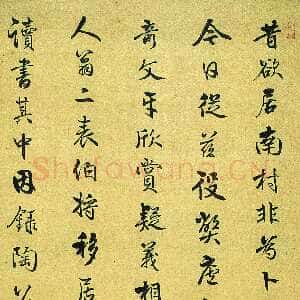 昔欲居南村非為卜
今日從茲役弊廬
奇文互欣賞疑義相
人翁二表伯將移居
讀書其中因錄陶
Shufawang.Cn